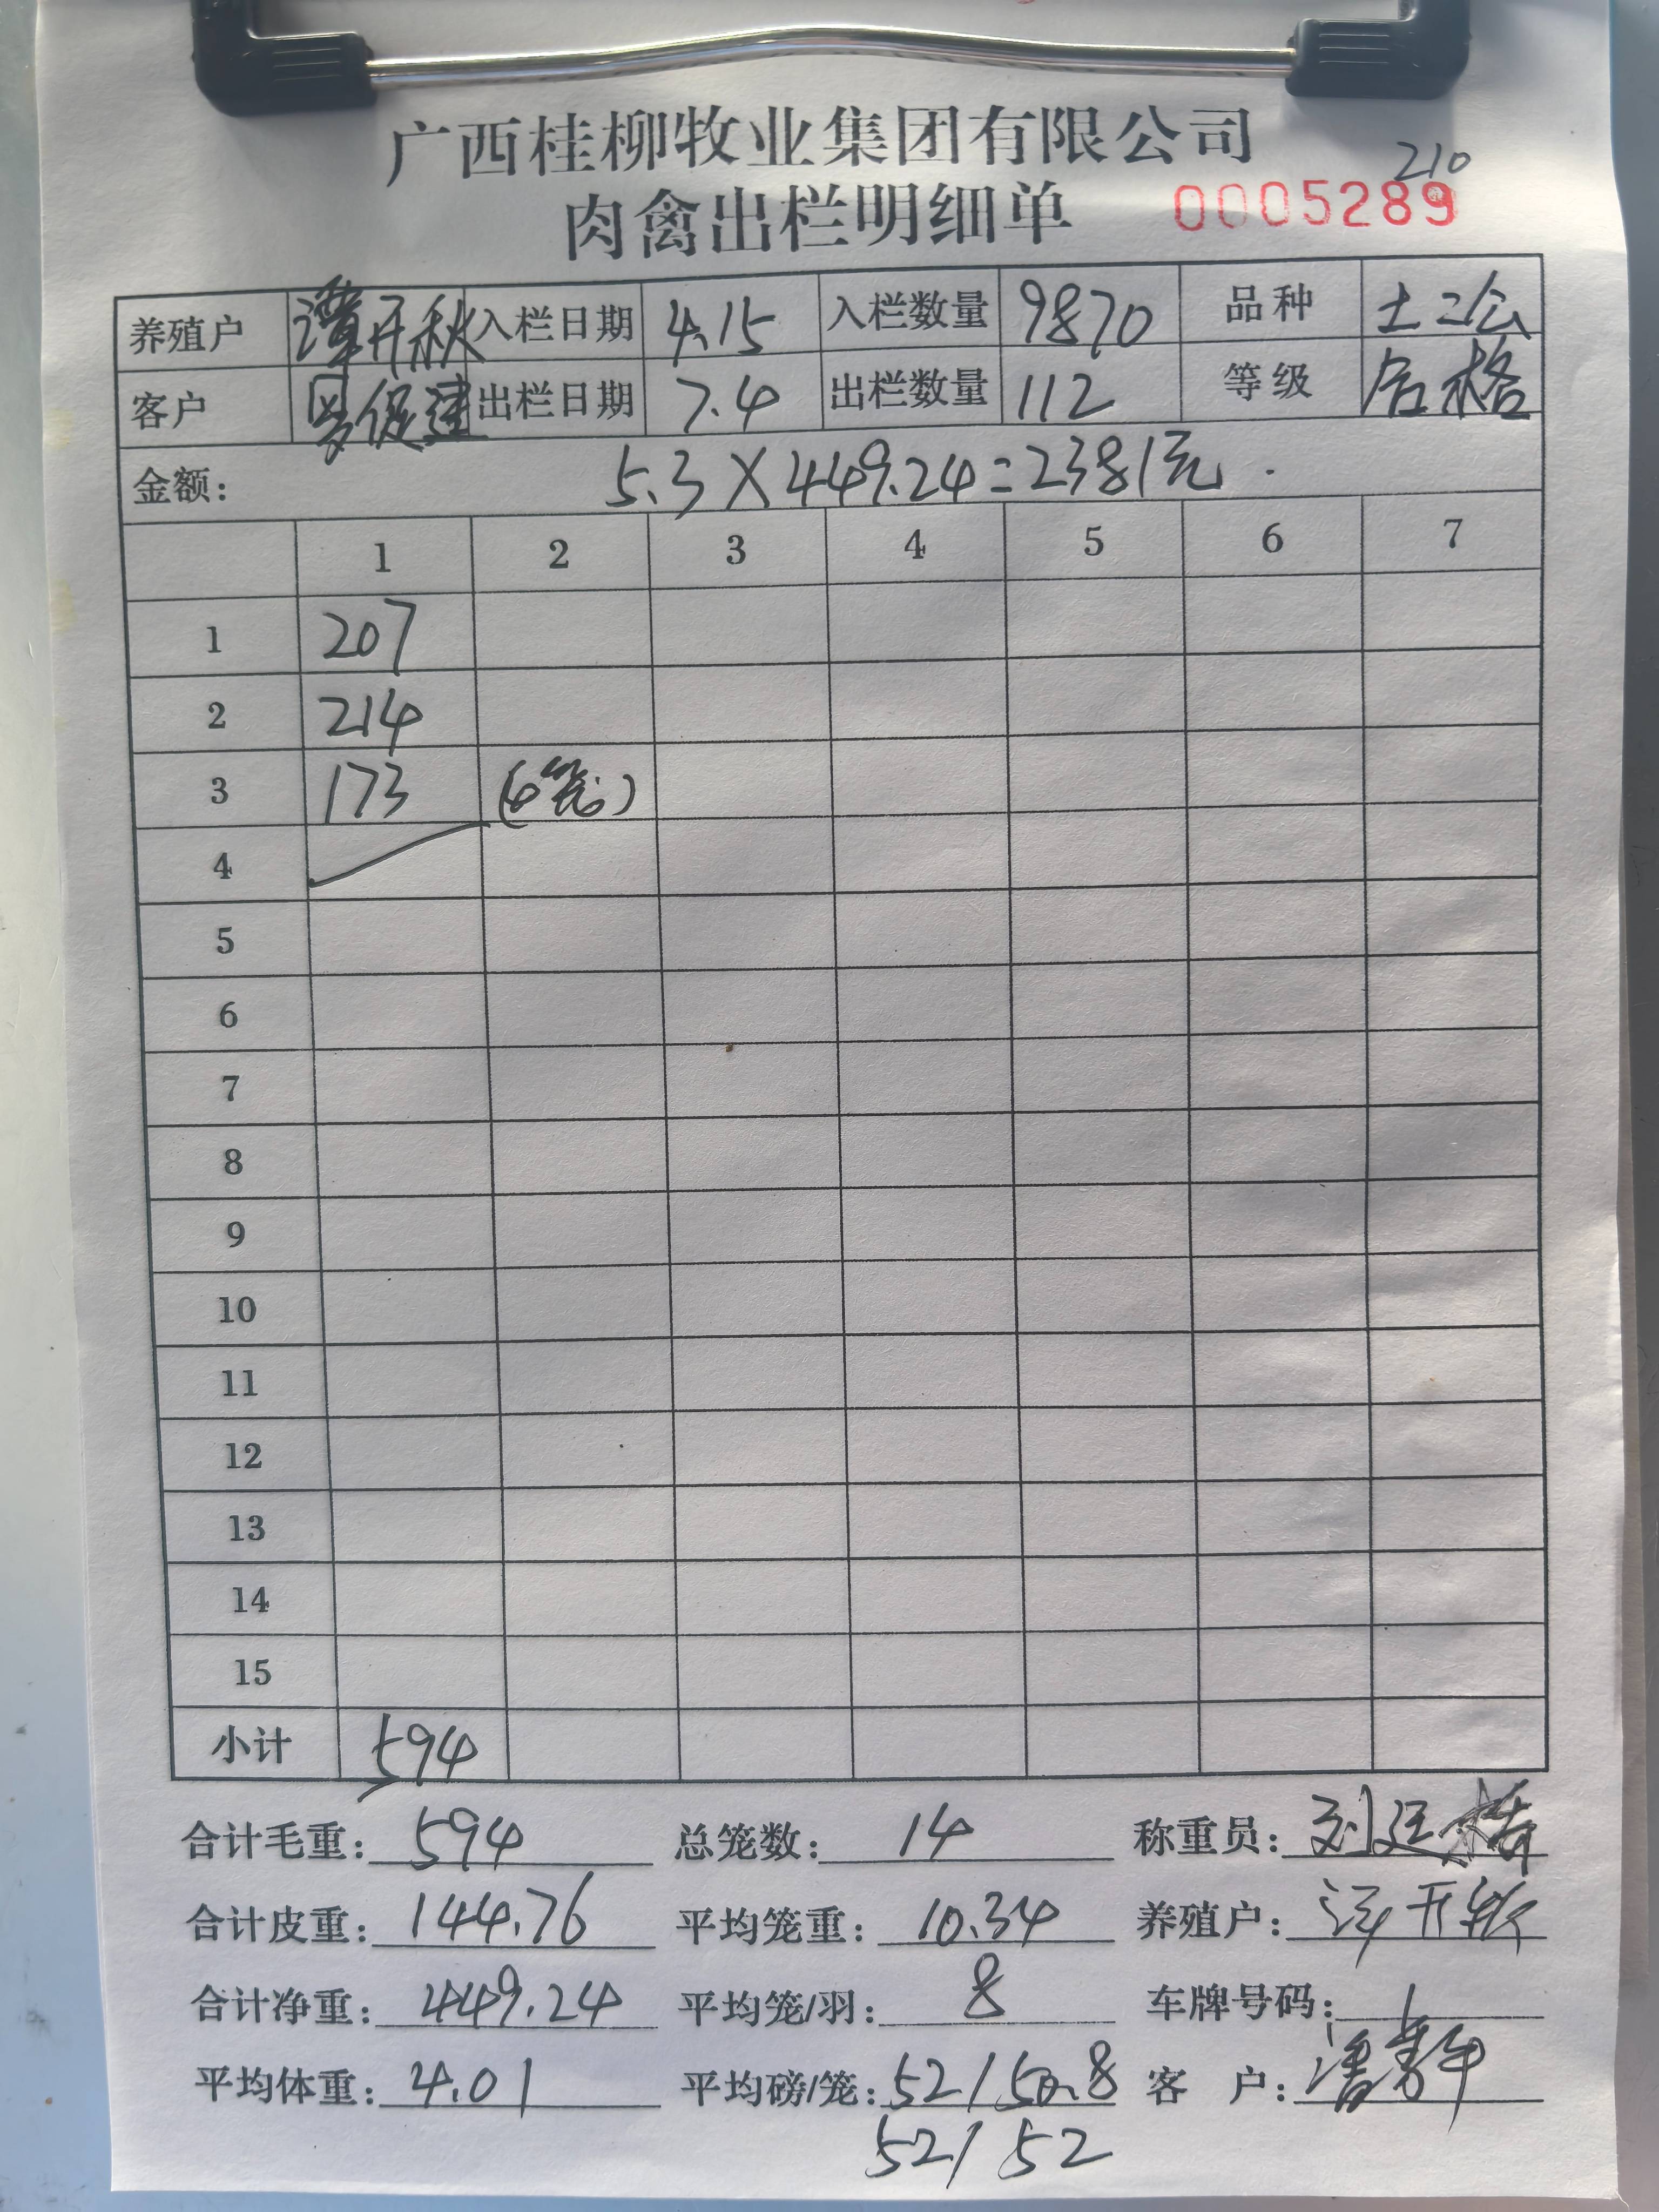 210
广西桂柳牧业集团有限公司
肉禽出栏明细单 0005289
养殖户 谭开秋 入栏日期 4.15 入栏数量 9870 品种 土二公
客户 促建 出栏日期 7.4 出栏数量 112 等级 合格
金额: 5.3×449.24=2381元.
1 2 3 4 5 6 7
1 207
2 214
3 173 (4笼)
4
5
6
7
8
9
10
11
12
13
14
15
小计 594
合计毛重: 594 总笼数: 14 称重员: 刘廷
合计皮重: 144.76 平均笼重: 10.34 养殖户: 谭开秋
合计净重: 449.24 平均笼/羽: 8 车牌号码: /
平均体重: 4.01 平均磅/笼: 52/50.8 客 户:
52/52